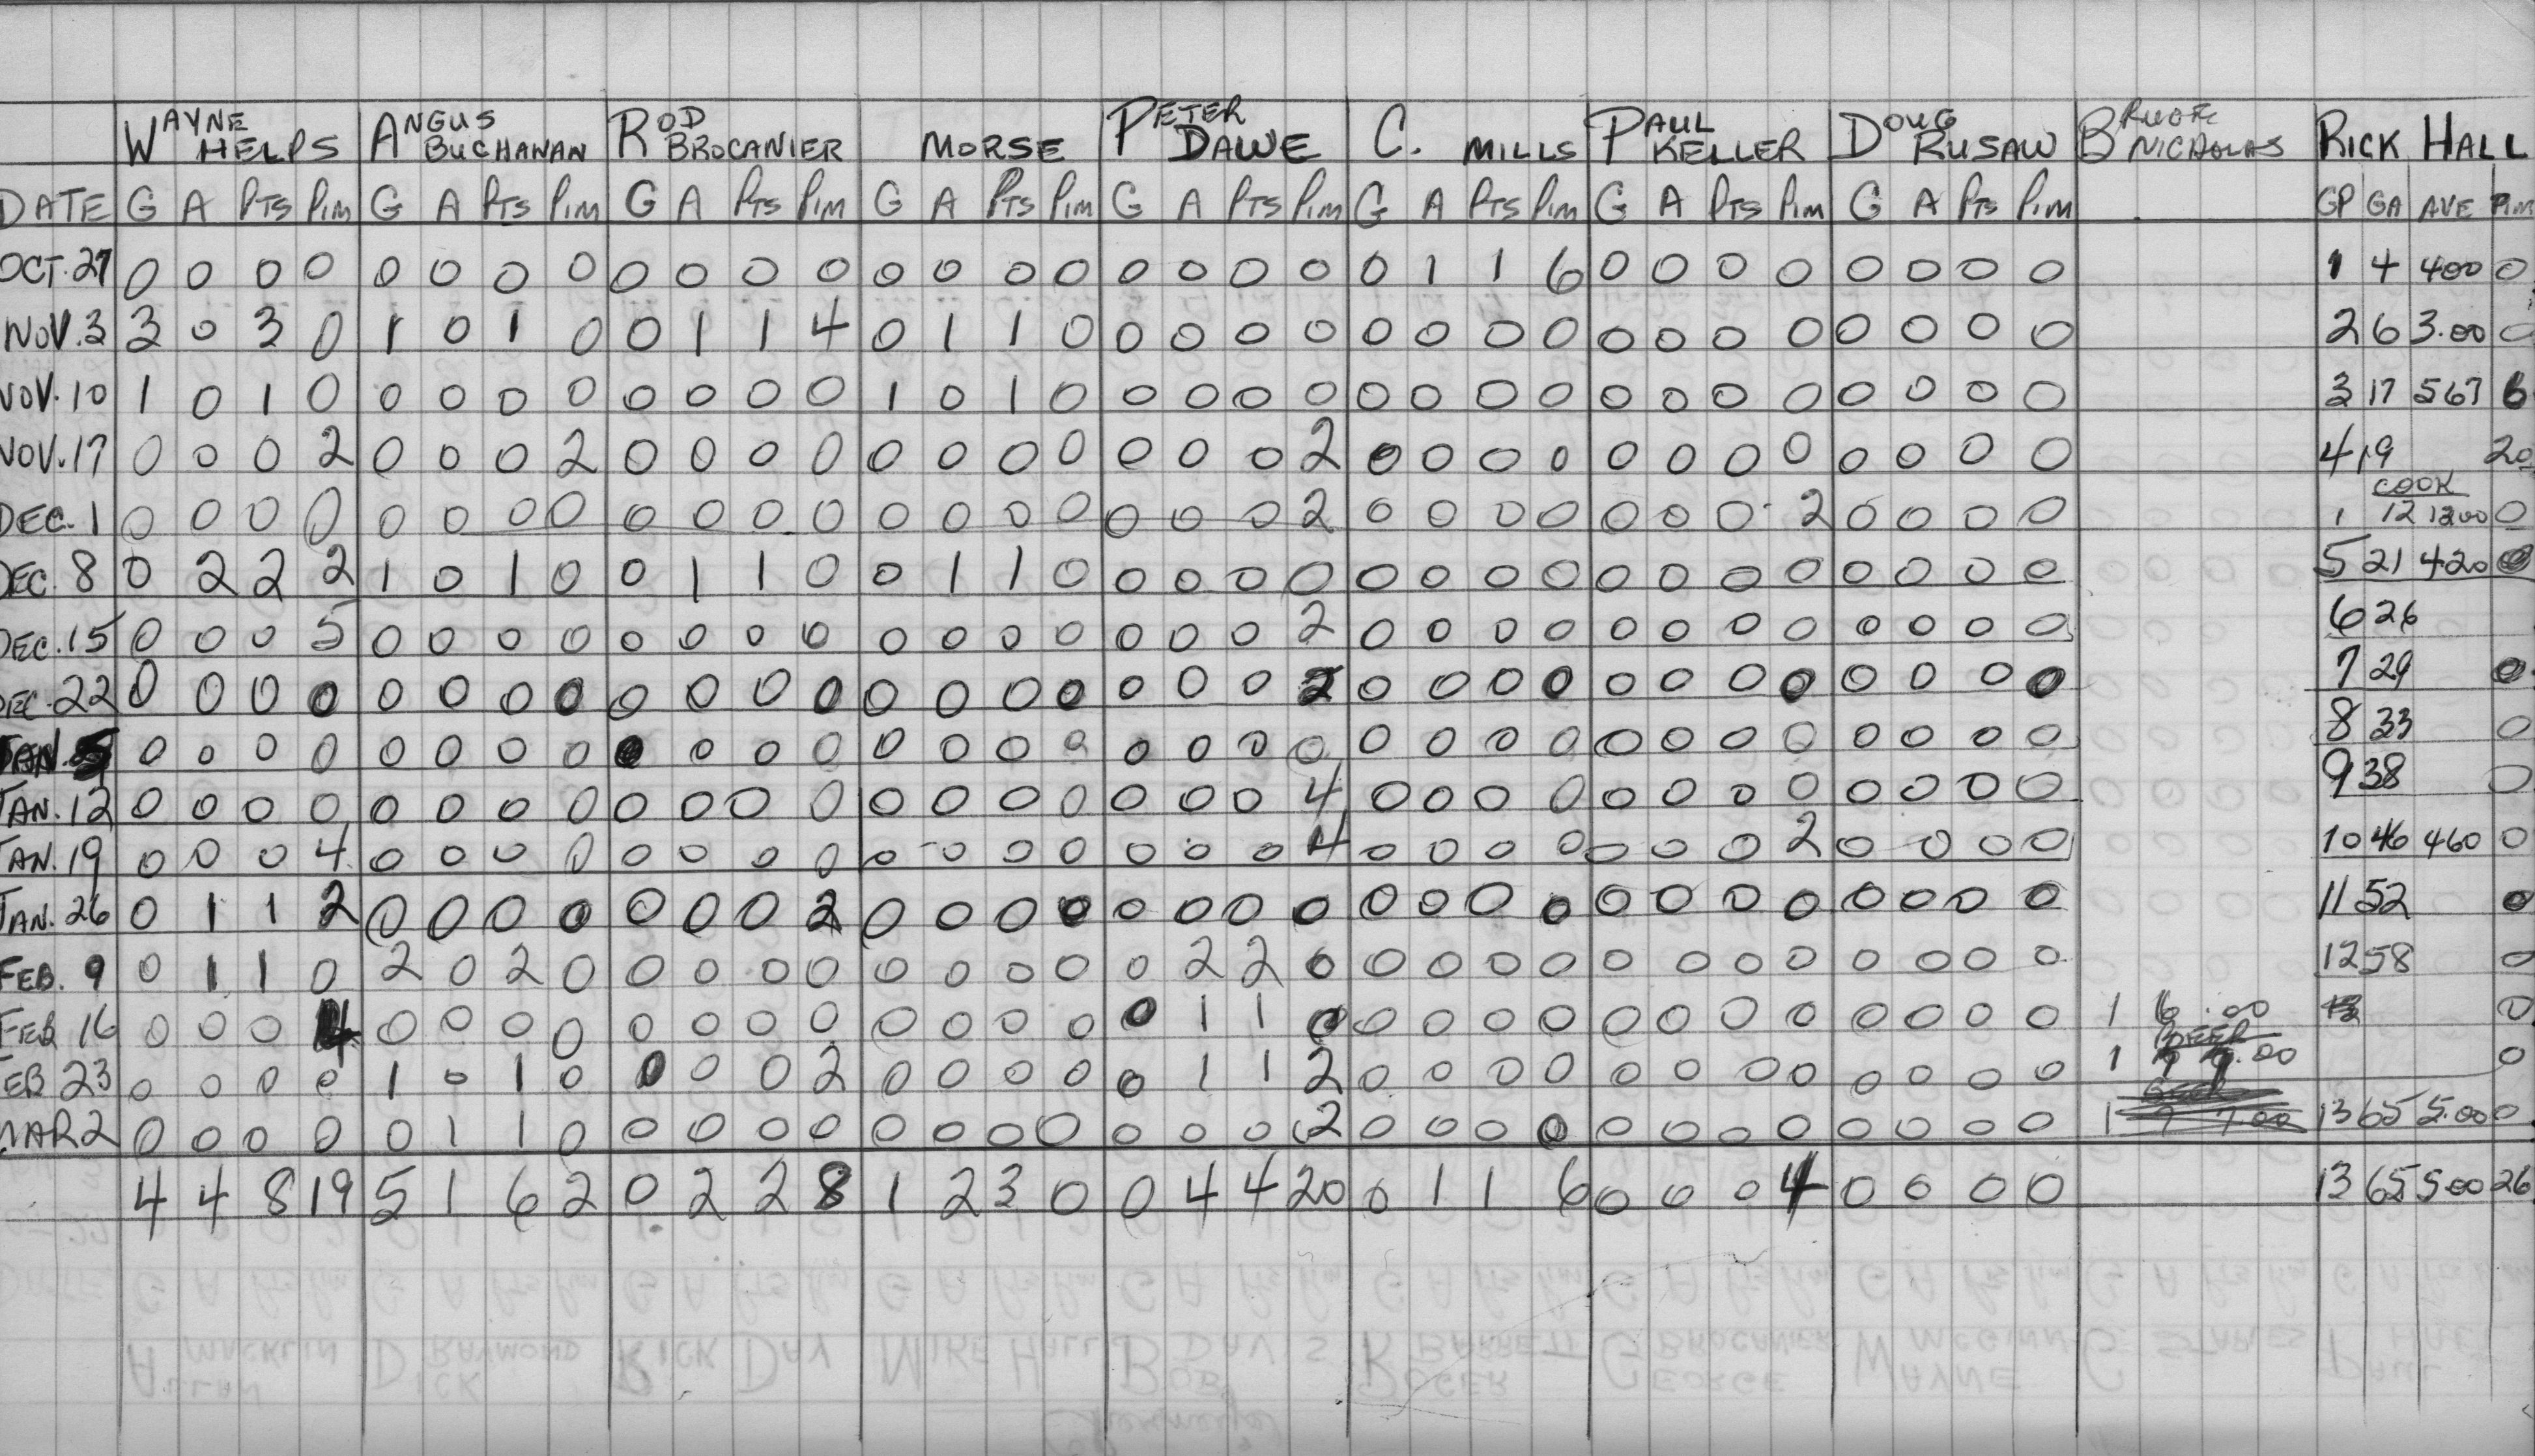 WAYNE HELPS ANGUS BUCHANAN ROD BROCANIER MORSE PETER DAWE C. MILLS PAUL KELLER DOUG RUSAW BRUCE NICHOLAS RICK HALL
DATE G A PTS PIM G A PTS PIM G A PTS PIM G A PTS PIM G A PTS PIM G A PTS PIM G A PTS PIM G A PTS PIM GP GA AVE PIM
OCT. 27 0 0 0 0 0 0 0 0 0 0 0 0 0 0 0 0 0 0 0 0 0 1 1 6 0 0 0 0 0 0 0 0 1 4 400 0
NOV. 3 3 0 3 0 1 0 1 0 0 1 1 4 0 1 1 0 0 0 0 0 0 0 0 0 0 0 0 0 0 0 0 0 2 6 3.00 0
NOV. 10 1 0 1 0 0 0 0 0 0 0 0 0 1 0 1 0 0 0 0 0 0 0 0 0 0 0 0 0 0 0 0 0 3 17 567 6
NOV. 17 0 0 0 2 0 0 0 2 0 0 0 0 0 0 0 0 0 0 0 2 0 0 0 0 0 0 0 0 0 0 0 0 4 19 20
COOK
DEC. 1 0 0 0 0 0 0 0 0 0 0 0 0 0 0 0 0 0 0 0 2 0 0 0 0 0 0 0 2 0 0 0 0 1 12 1200 0
DEC. 8 0 2 2 2 1 0 1 0 0 1 1 0 0 1 1 0 0 0 0 0 0 0 0 0 0 0 0 0 0 0 0 0 5 21 420 0
DEC. 15 0 0 0 5 0 0 0 0 0 0 0 0 0 0 0 0 0 0 0 2 0 0 0 0 0 0 0 0 0 0 0 0 6 26
DEC. 22 0 0 0 0 0 0 0 0 0 0 0 0 0 0 0 0 0 0 0 2 0 0 0 0 0 0 0 0 0 0 0 0 7 29 0
JAN. 5 0 0 0 0 0 0 0 0 0 0 0 0 0 0 0 0 0 0 0 0 0 0 0 0 0 0 0 0 0 0 0 0 8 33 0
JAN. 12 0 0 0 0 0 0 0 0 0 0 0 0 0 0 0 0 0 0 0 4 0 0 0 0 0 0 0 0 0 0 0 0 9 38 0
JAN. 19 0 0 0 4 0 0 0 0 0 0 0 0 0 0 0 0 0 0 0 4 0 0 0 0 0 0 0 2 0 0 0 0 10 46 460 0
JAN. 26 0 1 1 2 0 0 0 0 0 0 0 2 0 0 0 0 0 0 0 0 0 0 0 0 0 0 0 0 0 0 0 0 11 52 0
FEB. 9 0 1 1 0 2 0 2 0 0 0 0 0 0 0 0 0 0 2 2 0 0 0 0 0 0 0 0 0 0 0 0 0 12 58 0
FEB 16 0 0 0 4 0 0 0 0 0 0 0 0 0 0 0 0 0 1 1 0 0 0 0 0 0 0 0 0 0 0 0 0 1 6 .00 0
BEER
FEB 23 0 0 0 0 1 0 1 0 0 0 0 2 0 0 0 0 0 1 1 2 0 0 0 0 0 0 0 0 0 0 0 0 1 9 9.00 0
MAR 2 0 0 0 0 0 1 1 0 0 0 0 0 0 0 0 0 0 0 0 2 0 0 0 0 0 0 0 0 0 0 0 0 1 7 7.00 13 65 5.00 0
4 4 8 19 5 1 6 2 0 2 2 8 1 2 3 0 0 4 4 20 0 1 1 6 0 0 0 4 0 0 0 0 13 65 500 26